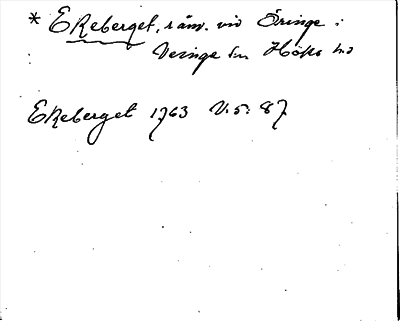 * Ekeberget, råm. vid Öringe i
Veinge sn Höks hd
Ekeberget 1763 V:5:87